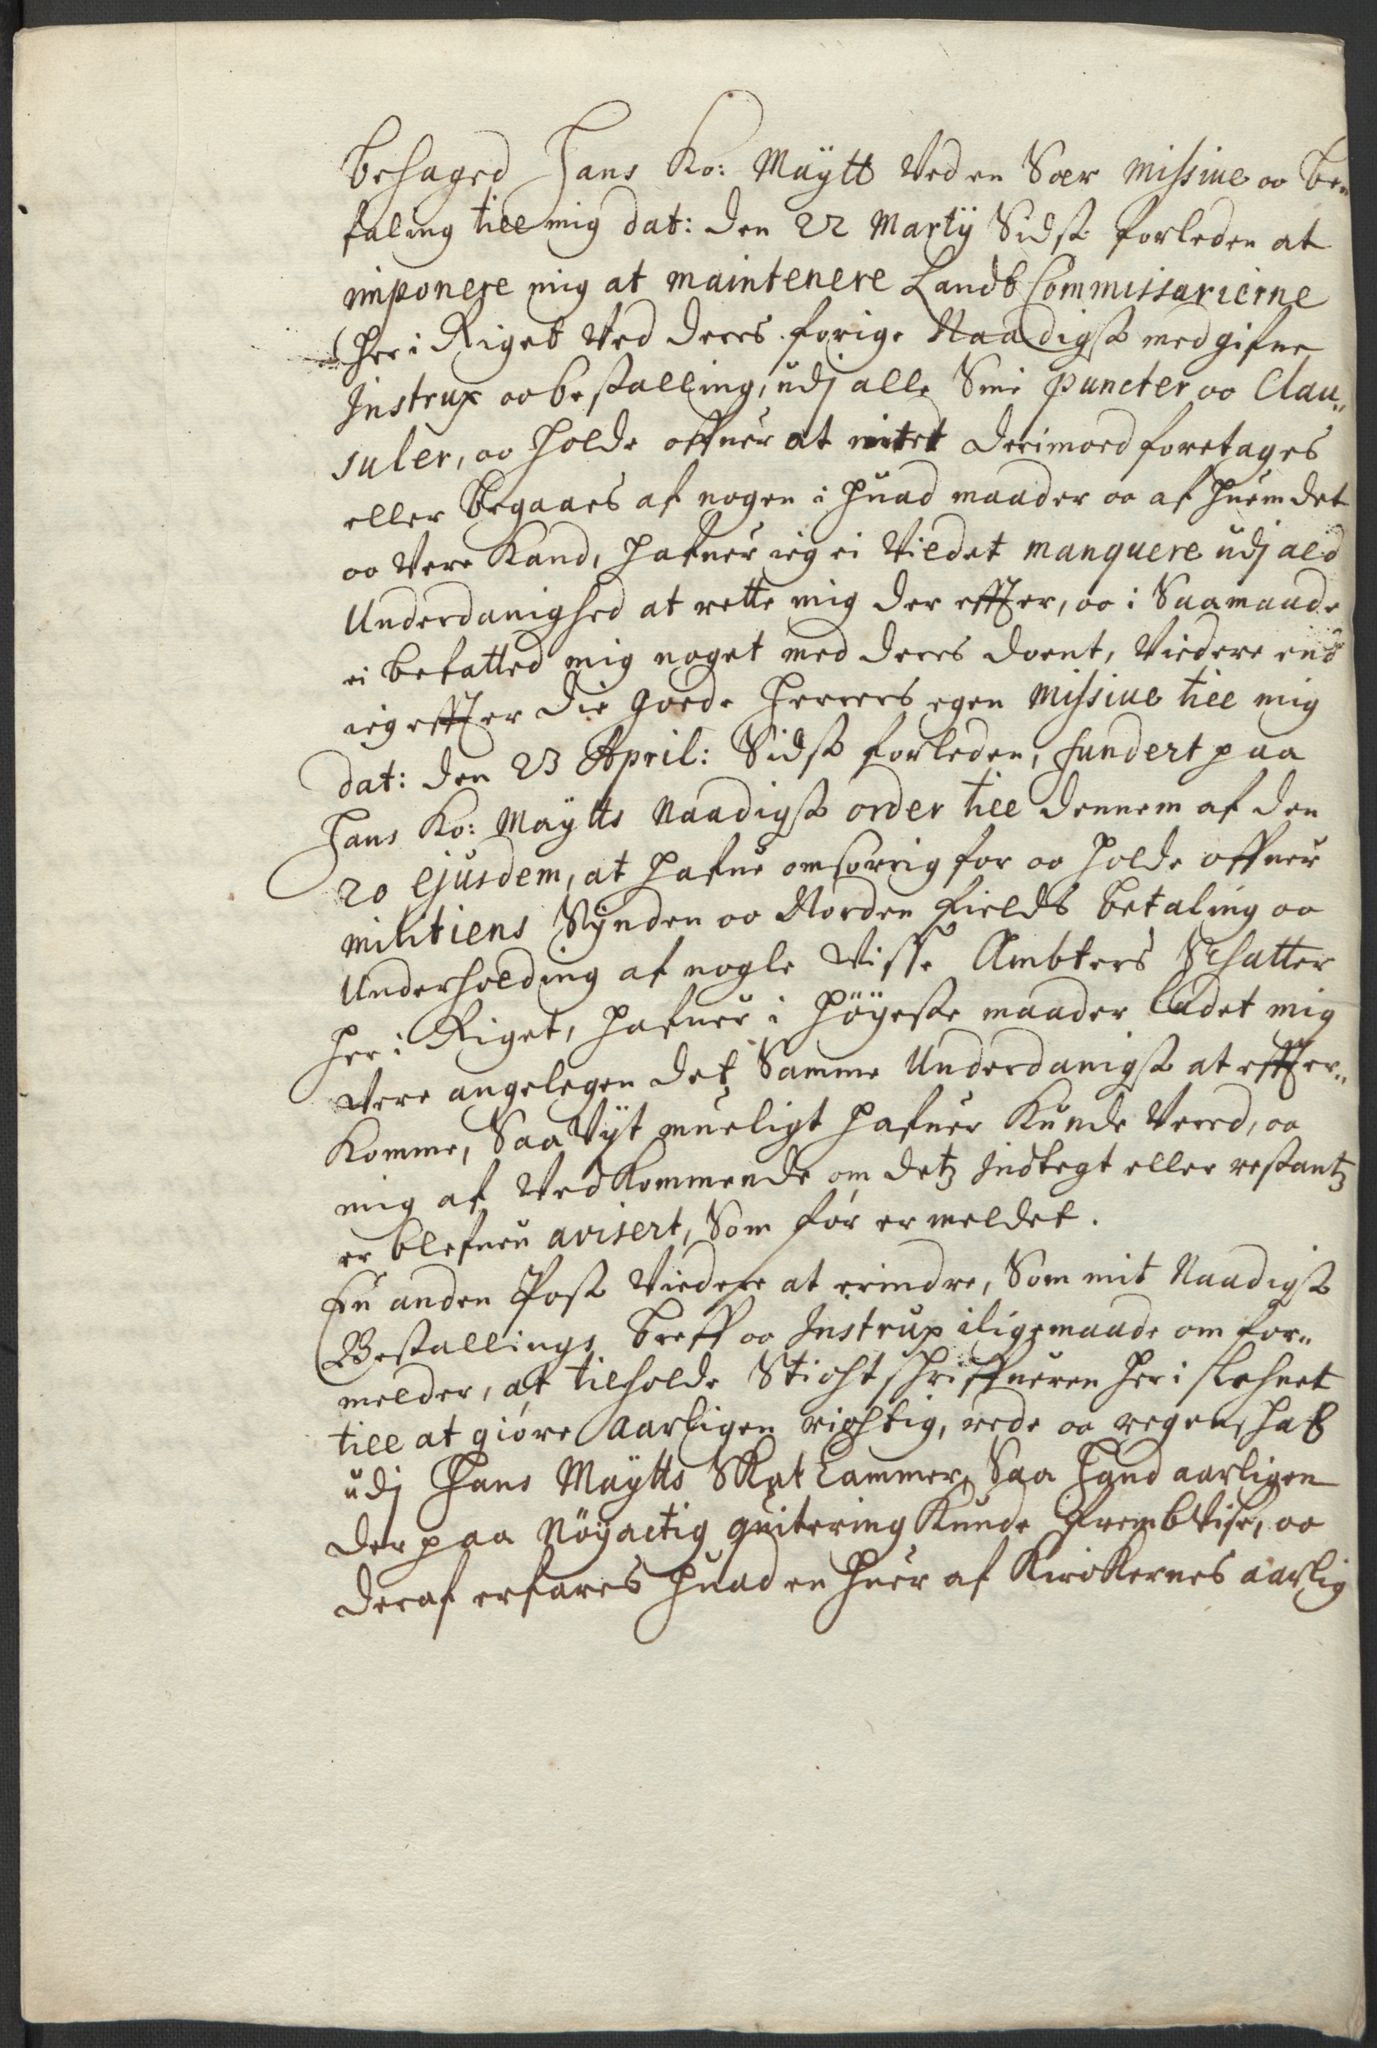 behaged Hans Ko: Maÿtt Ved en Soer Missiue oc be„
faling till mig dat: den 22 Martÿ Sidst forleden at
imponere mig at maintenere Landt Commissarierne
her i Riget Ved deres forige Naadigst medgifne
Instrux oc bestalling, udj alle Sine puncter oc Clau„
suler, oc holde offuer at intet derimoed foretages
eller begaaes af nogen i huad maader oc af huem det
oc Vere Kand, hafuer ieg ei Vildet manquere udj ald
Underdanighed at rette mig der effter, oc i Saamaade
ei befatted mig noget med deres doent, Videre end
ieg effter die goede Herrers egen Missiue till mig
dat: den 23 April: Sidst forleden, fundert paa
Hans Ko: Maÿtts Naadigst order till dennem af den
20 ejusdem, at hafue omsorrig for oc holde offuer
militiens Synden oc Norden Fields betaling oc
Underholding af nogle Visse Ambters Schatter
her i Riget, hafuer i höÿeste maader ladet mig
Vere angelegen det Samme Underdanigst at effter„
Komme, Saa Vÿt mueligt hafuer Kunde Vered, oc
mig af Vedkommende om detz Indtegt eller restantz
er blefuen avisert, Som før er meldet.
En anden Post Videre at erindre, Som mit Naadigst
Bestallings breff oc Instrux iligemaade om for„
melder, at tilholde Sticht schriffueren her i Lehnet
till at giöre aarligen richtig, rede oc regenschaf
udj Hans Maÿtts Skat Cammer, Saa hand aarligen
der paa Nöÿactig qvitering Kunde frembvise, oc
deraf erfares huad en huer af Kirckernes aarlig